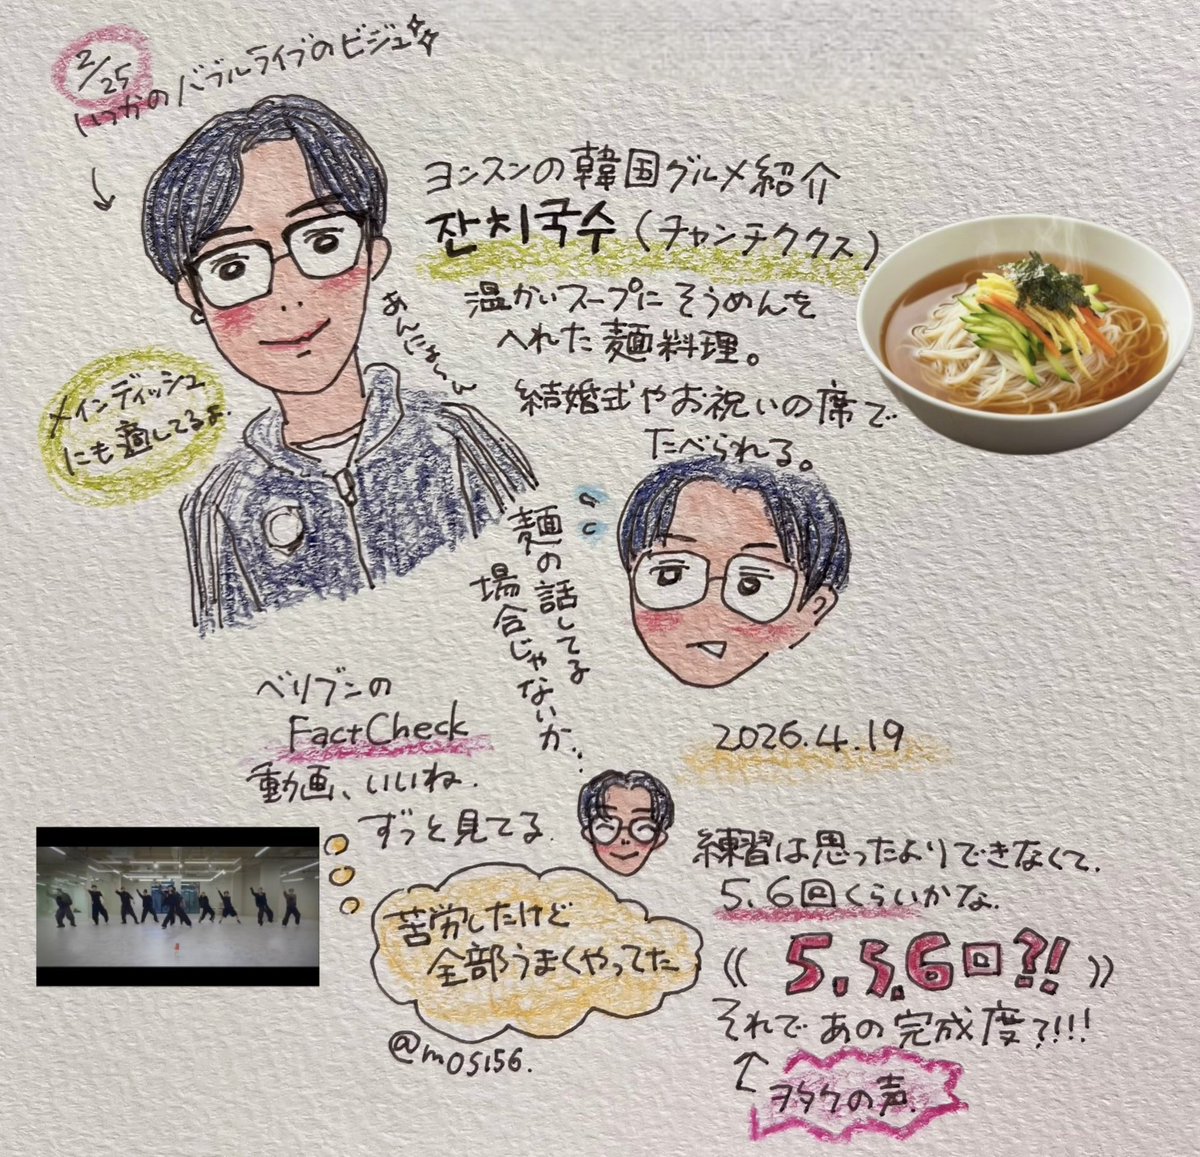 2/25
いつかのバブルライブのビジュ
ヨンスンの韓国グルメ紹介
잔치국수(チャンチククス)
温かいスープにそうめんを
入れた麺料理。
結婚式やお祝いの席で
たべられる。
あんにょーん
メインディッシュ
にも適してるよ.
麺の話してる
場合じゃないか...
ベリブンの
FactCheck
動画、いいね.
ずっと見てる.
2026.4.19
苦労したけど
全部うまくやってた
@mosi56.
練習は思ったよりできなくて.
5.6回くらいかな.
《 5.5.6回?! 》
それであの完成度?!!!
ヲタクの声.